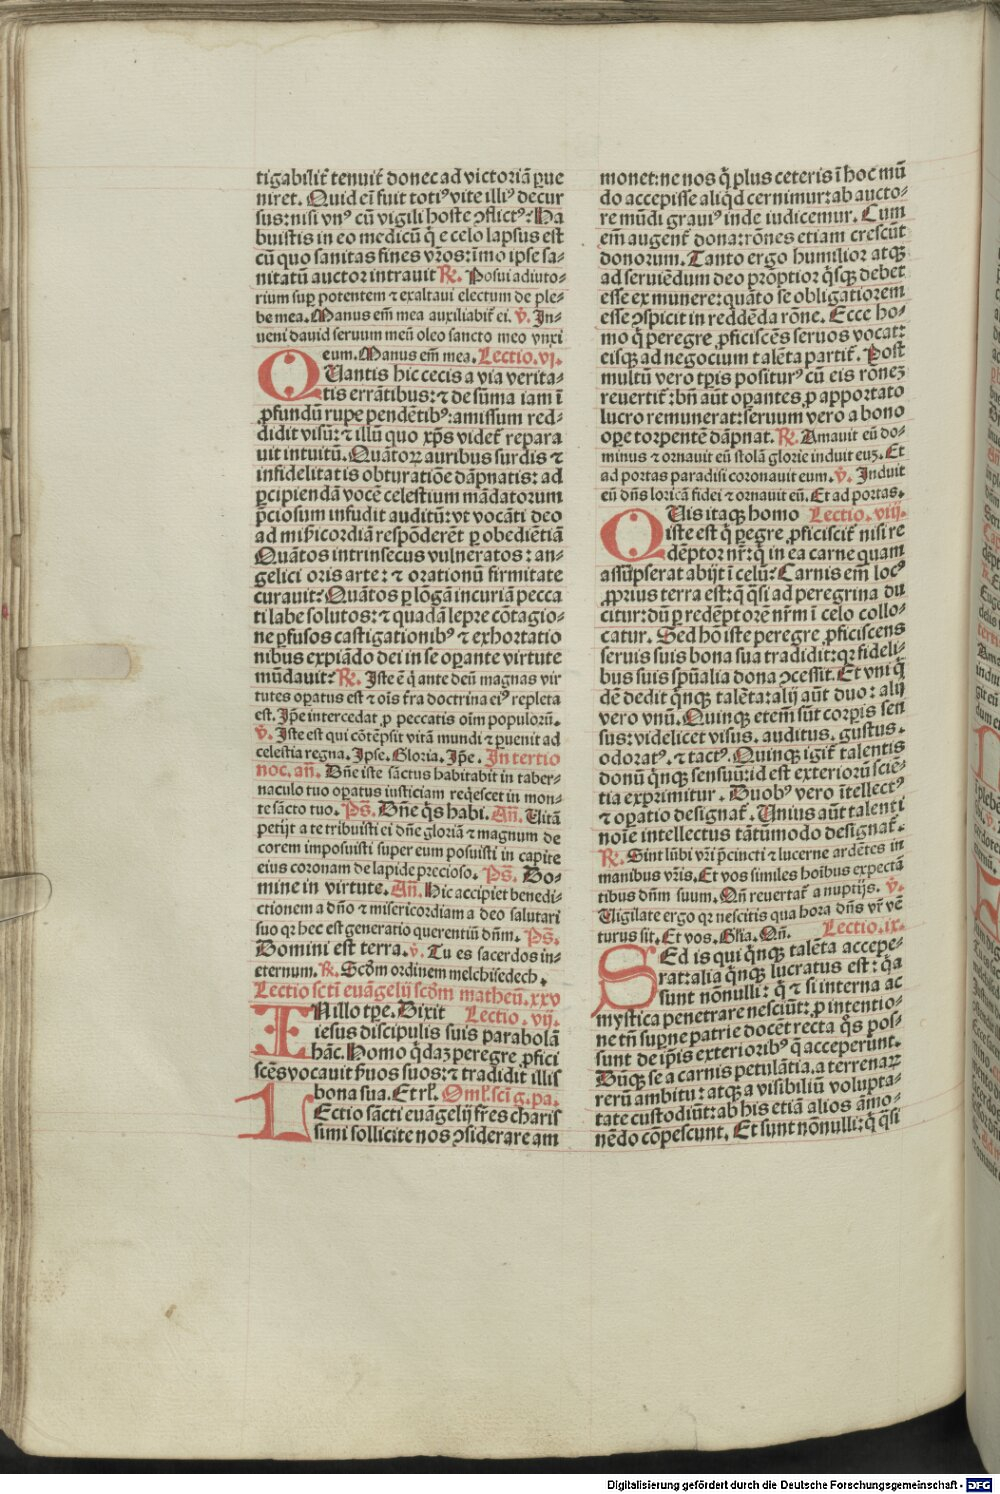 tigabilit̃ tenuit̃ donec ad victoriã ꝑue
niret. Quid eĩ fuit totiꝰ vite illiꝰ decur
sus: nisi vnꝰ cũ vigili hoste ꝯflictꝰ? Ha
buistis in eo medicũ q̃ e celo lapsus est
cũ quo sanitas fines vr̃os: imo ipse sa-
nitatũ auctor intrauit ℟. Posui adiuto-
rium sup̃ potentem ⁊ exaltaui electum de ple-
be mea. Manus em̃ mea auxiliabit̃ ei. ℣. In-
ueni dauid seruum meũ oleo sancto meo vnxi
eum. Manus em̃ mea. Lectio .vi.
QUantis hic cecis a via verita-
tis errãtibus: ⁊ de sũma iam ĩ
ꝓfundũ rupe pendẽtibꝰ: amissum red-
didit visũ: ⁊ illũ quo xp̃s videt̃ repara
uit intuitũ. Quãtoꝝ auribus surdis ⁊
infidelitatis obturatiõe dãpnatis: ad
ꝑcipiendã vocẽ celestium mãdatorum
p̃ciosum infudit auditũ: vt vocãti deo
ad mĩsericordiã respõderẽt ꝑ obediẽtiã
Quãtos intrinsecus vulneratos: an-
gelici oris arte: ⁊ orationũ firmitate
curauit? Quãtos ꝑ lõgã incuriã pecca
ti labe solutos: ⁊ quadã lepre cõtagio-
ne ꝑfusos castigationibꝰ ⁊ exhortatio
nibus expiãdo dei in se oꝑante virtute
mũdauit? ℟. Iste ẽ q̃ ante deũ magnas vir
tutes oꝑatus est ⁊ oĩs t̃ra doctrina eiꝰ repleta
est. Ip̃e intercedat ꝓ peccatis oĩm populorũ.
℣. Iste est qui cõtẽpsit vitã mundi ⁊ ꝑuenit ad
celestia regna. Ipse. Gloria. Ip̃e. In tertio
noc. añ. Dñe iste sãctus habitabit in taber-
naculo tuo oꝑatus iusticiam req̃escet in mon-
te sãcto tuo. Ps̃. Dñe q̃s habi. Añ. Uitã
petijt a te tribuisti ei dñe gloriã ⁊ magnum de
corem imposuisti super eum posuisti in capite
eius coronam de lapide precioso. Ps̃. Do-
mine in virtute. Añ. Hic accipiet benedi-
ctionem a dño ⁊ misericordiam a deo salutari
suo qꝛ hec est generatio querentiũ dñm. Ps̃.
Domini est terra. ℣. Tu es sacerdos in-
eternum. ℟. Scd̃m ordinem melchisedech.
Lectio sctĩ euãgelij scd̃m matheũ. xxv
IN illo tp̃e. Dixit Lectio .vij.
iesus discipulis suis parabolã
hãc. Homo q̃daꝫ peregre ꝓfici
scẽs vocauit s̃uos suos: ⁊ tradidit illis
bona sua. Et rl̃. Oml̃. sct̃i g. pa.
LEctio sãcti euãgelij fr̃es charis
simi sollicite nos ꝯsiderare am
monet: ne nos q̃ plus ceteris ĩ hoc mũ
do accepisse aliq̃d cernimur: ab aucto-
re mũdi grauiꝰ inde iudicemur. Cum
em̃ augent̃ dona: rõnes etiam crescũt
donorum. Tanto ergo humilior atqꝫ
ad seruiẽdum deo prõptior q̃sqꝫ debet
esse ex munere: quãto se obligatiorem
esse ꝯspicit in reddẽda rõne. Ecce ho-
mo q̃ peregre ꝓficiscẽs seruos vocat:
eisqꝫ ad negocium talẽta partit̃. Post
multũ vero tꝑis positurꝰ cũ eis rõneꝫ
reuertit̃: bñ aũt oꝑantes ꝓ apportato
lucro remunerat: seruum vero a bono
oꝑe torpentẽ dãpnat. ℟. Amauit eũ do-
minus ⁊ ornauit eũ stolã glorie induit euꝫ. Et
ad portas paradisi coronauit eum. ℣. Induit
eũ dñs loricã fidei ⁊ ornauit eũ. Et ad portas.
QUis itaqꝫ homo Lectio .viij.
iste est q̃ ꝑegre ꝓficiscit̃ nisi re
dẽptor nr̃: q̃ in ea carne quam
assũpserat abijt ĩ celũ? Carnis em̃ locꝰ
ꝓprius terra est: q̃ q̃si ad peregrina du
citur: dũ ꝑ redẽptorẽ nr̃m ĩ celo collo-
catur. Sed hõ iste peregre ꝓficiscens
seruis suis bona sua tradidit: qꝛ fideli-
bus suis sp̃ualia dona ꝯcessit. Et vni q̃
dẽ dedit q̃nqꝫ talẽta: alij aũt duo: alij
vero vnũ. Quinqꝫ etem̃ sũt corꝑis sen
sus: videlicet visus. auditus. gustus.
odoratꝰ. ⁊ tactꝰ. Quinqꝫ igit̃ talentis
donũ q̃nqꝫ sensuũ: id est exteriorũ sciẽ-
tia exprimitur. Duobꝰ vero ĩtellectꝰ
⁊ oꝑatio designat̃. Unius aũt talenti
noĩe intellectus tãtũmodo designat̃.
℟. Sint lũbi vr̃i p̃cincti ⁊ lucerne ardẽtes in
manibus vr̃is. Et vos similes hoĩbus expectã
tibus dñm suum. Qñ reuertat̃ a nuptijs. ℣.
Uigilate ergo qꝛ nescitis qua hora dñs vr̃ vẽ
turus sit. Et vos. Gl̃ia. Qñ. Lectio .ix.
SEd is qui q̃nqꝫ talẽta accepe-
rat: alia q̃nqꝫ lucratus est: q̃a
sunt nõnulli: q̃ ⁊ si interna ac
mystica penetrare nesciũt: ꝓ intentio-
ne tñ suꝑne patrie docẽt recta q̃s pos-
sunt de ip̃is exterioribꝰ q̃ acceperunt.
Dũqꝫ se a carnis petulãtia. a terrenaꝝ
rerũ ambitu: atqꝫ a visibiliũ volupta-
tate custodiũt: ab his etiã alios ãmo-
nẽdo cõpescunt. Et sunt nõnulli: q̃ q̃si
Digitalisierung gefördert durch die Deutsche Forschungsgemeinschaft - DFG